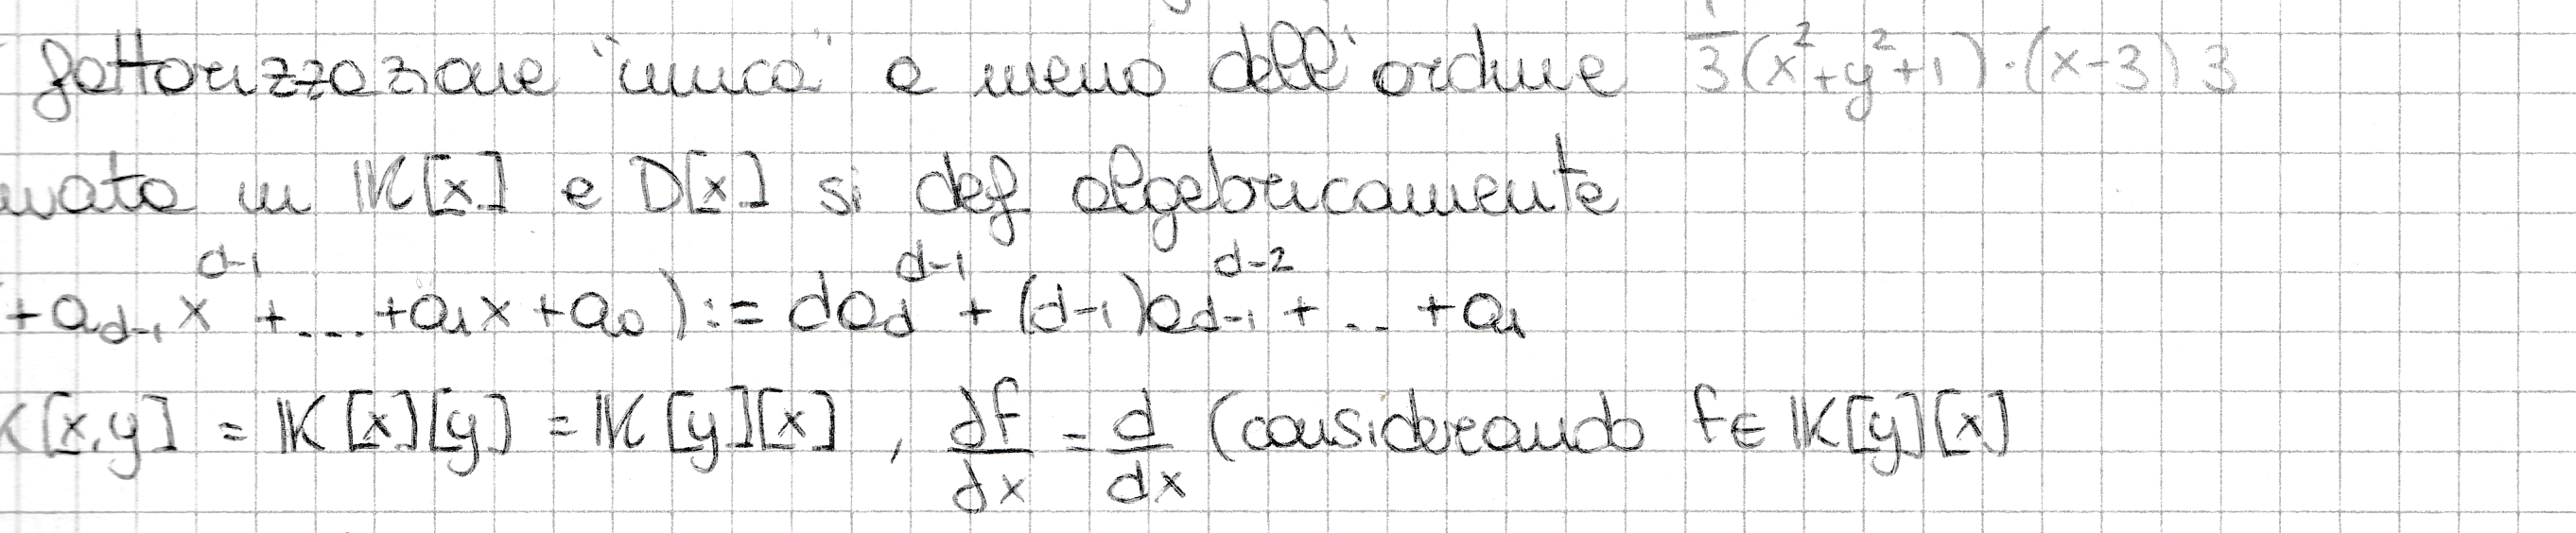 fattorizzazione "unica" a meno dell'ordine $\frac{1}{3}(x^2+y^2+1)\cdot(x-3)3$
in $\mathbb{K}[x]$ e $D[x]$ si def algebricamente
$+a_{d-1}x^{d-1}+\ldots+a_1x+a_0) := da_d^{d-1}+(d-1)a_{d-1}^{d-2}+\ldots+a_1$
$K[x,y] = \mathbb{K}[x][y] = \mathbb{K}[y][x]$ , $\frac{\partial f}{\partial x} = \frac{d}{dx}$ (considerando $f \in \mathbb{K}[y][x]$